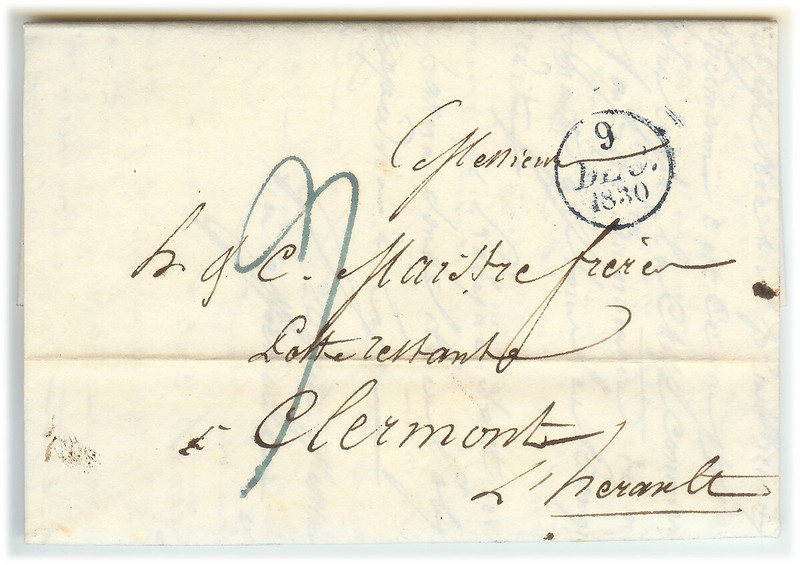 Messieurs
9
DEC.
1830
h & C. Maistre frères
Poste restante
à Clermont
L'herault